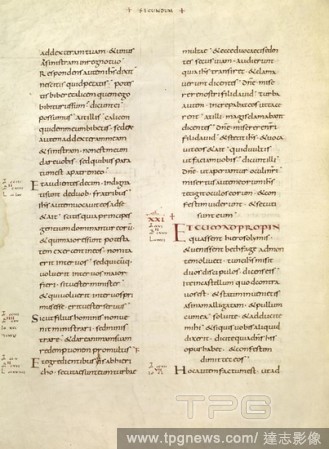 SECUNDUM
addexteramtuam & unus
Asinistram inregnotuo
Respondens autem ihs dixit
nescitis quid petatis potes
tis bibere calicem quem ego
bibiturus sum dicunt ei
possumus Ait illis calicem
quidem meum bibetis sedere
autem addexteram meam
& sinistram non est meum
dare vobis sed quibus para
tum est a patre meo
Et audientes decem indigna
ti sunt deduobus fratribus
ihs autem vocavit eos adse
& ait scitis quia principes
gentium dominantur eorum
& qui maiores sunt potesta
tem exercent in eos non ita
erit inter vos sed quicumq;
voluerit inter vos maior
fieri sit vester minister
& qui voluerit inter vos pri
mus esse erit vester servus
Sicut filius hominis non ve
nit ministrari sed minis
trare & dare animam suam
redemptionem pro multis
Et egredientibus eis ab hieri
cho secutae sunt eum turbae
multae & ecce duo caeci seden
tes secus viam audierunt
quia ihs transiret & clama
verunt dicentes dne mise
rere nostri fili david turba
autem increpabat eos ut tace
rent at illi magis clamabant
dicentes dne miserere nri
fili david & stetit ihs & voca
vit eos & ait quid vultis
ut faciam vobis dicunt illi
dne ut aperiantur oculi nri
misertus autem eorum ihs
tetigit oculos eorum & con
festim viderunt & secuti
sunt eum
XXI
ETCUMADPROPIN
quassent hierosolymis
& venissent bethfage admon
tem oliveti tunc ihs misit
duos discipulos dicens eis
ite in castellum quod contra
vos est & statim invenietis
asinam alligatam & pullum
cum ea solvite & adducite
mihi & si quis vobis aliquid
dixerit dicite quia dns his
opus habet & confestim
dimittet eos
Hoc autem factum est ut ad
TPG
www.tpgnews.com/達志影像